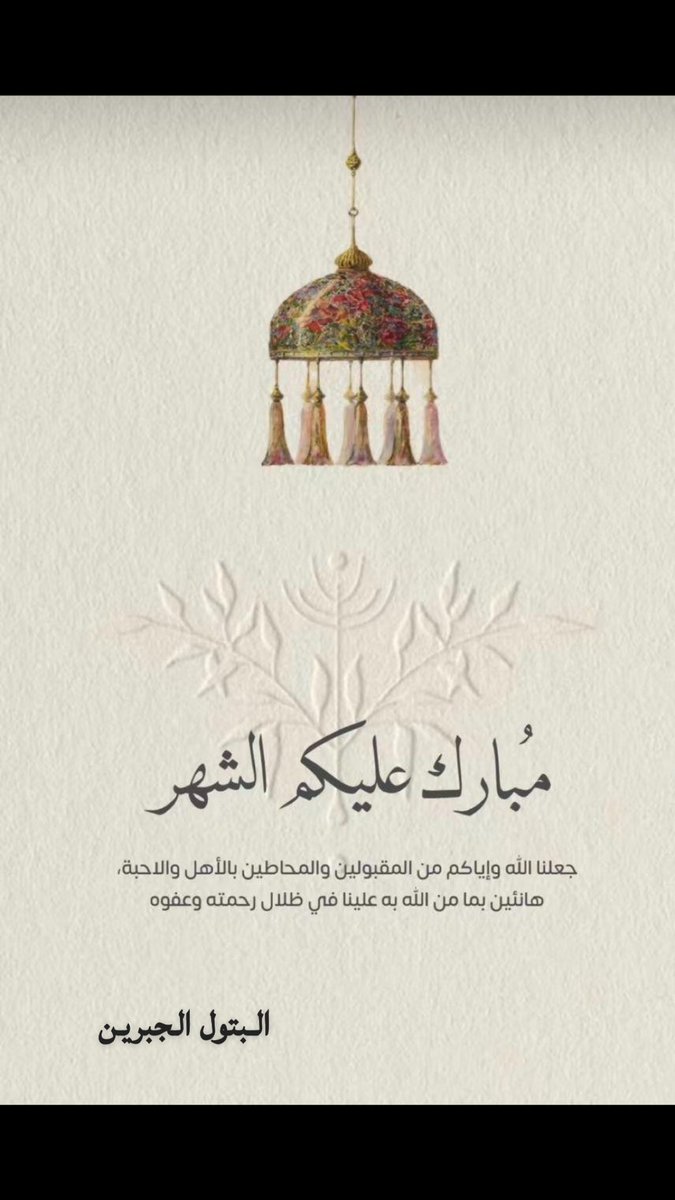 مُبارك عليكم الشهر
جعلنا الله وإياكم من المقبولين والمحاطين بالأهل والاحبة،
هانئين بما من الله به علينا في ظلال رحمته وعفوه
البتول الجبرين